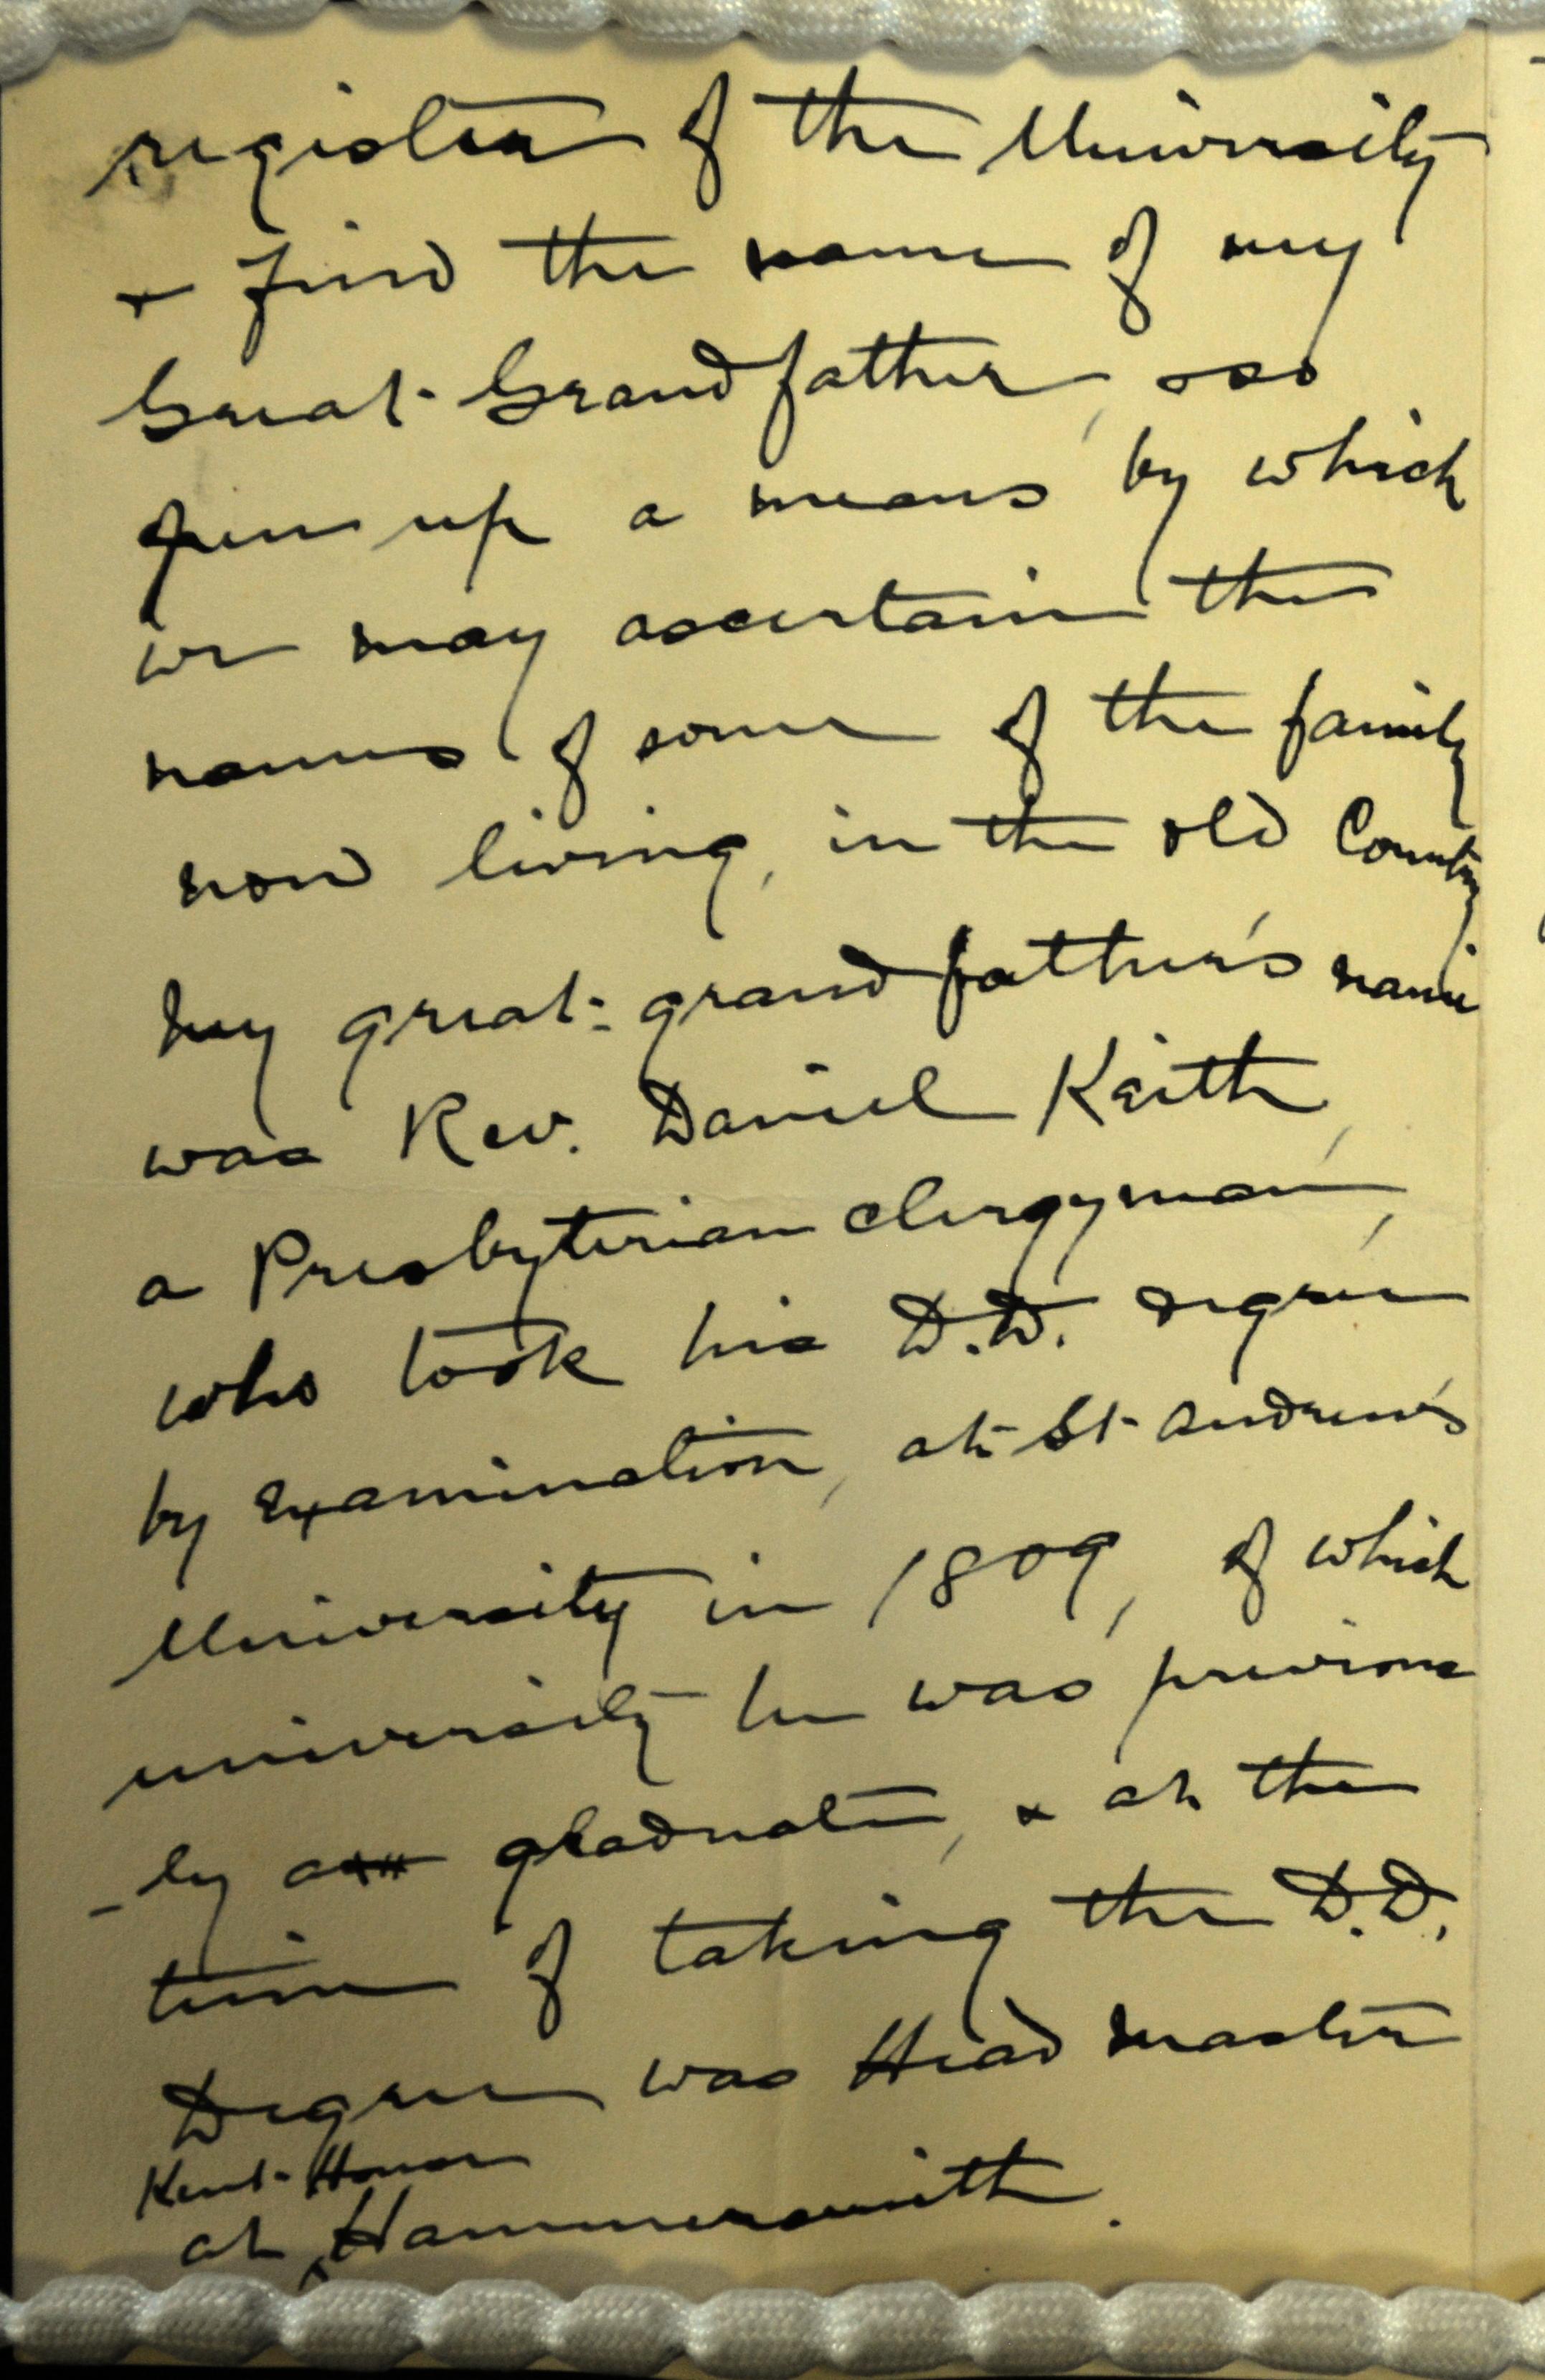 register of the University
& find the name of my
Great-Grandfather, &so
open up a means by which
we may ascertain the
names of some of the family
now living, in the old Country
My great-grandfather's name
was Rev. Daniel Keith,
a Presbyterian clergyman,
who took his D.D. degree,
by examination, at St. Andrew's
University in 1809, of which
university he was previous
-ly a graduate, & at the
time of taking the D.D.
Degree was Head Master
Kent-House
at ^ Hammersmith.